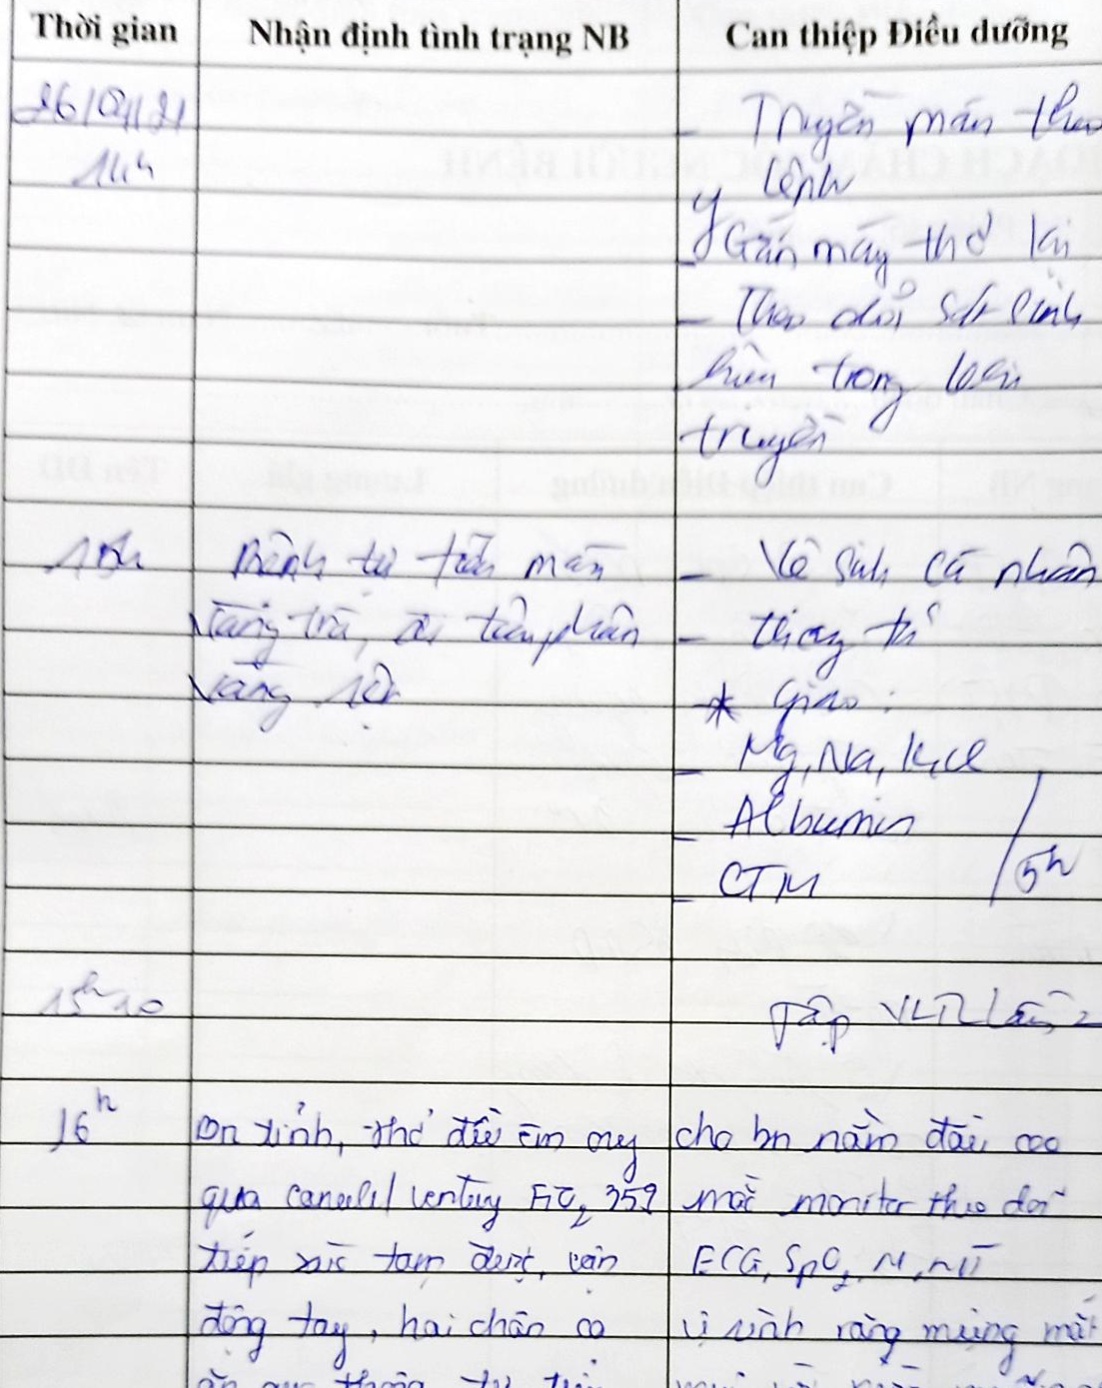 Thời gian
Nhận định tình trạng NB
Can thiệp Điều dưỡng
26/04/21
14h
- Truyền máu theo
y lệnh
- Gắn máy thở lại
- Theo dõi sát sinh
hiệu trong khi
truyền
15h
Bệnh tự tiểu màn
vàng trà, đi tiêu phân
vàng
- Vệ sinh cá nhân
- thay tã
* Giao:
- Mg, Na, K, Cl
- Albumin
- CTM
5h
15h10
Tập VLTL lần 2
16h
Bn tỉnh, thở đều êm oxy
qua canuel/ ventury FiO2 35%
tiếp xúc tạm được, vận
động tay, hai chân co
ăn qua thông tự tiểu
cho bn nằm đầu cao
mắc monitor theo dõi
ECG, SpO2, M, HA
vệ sinh răng miệng mắt